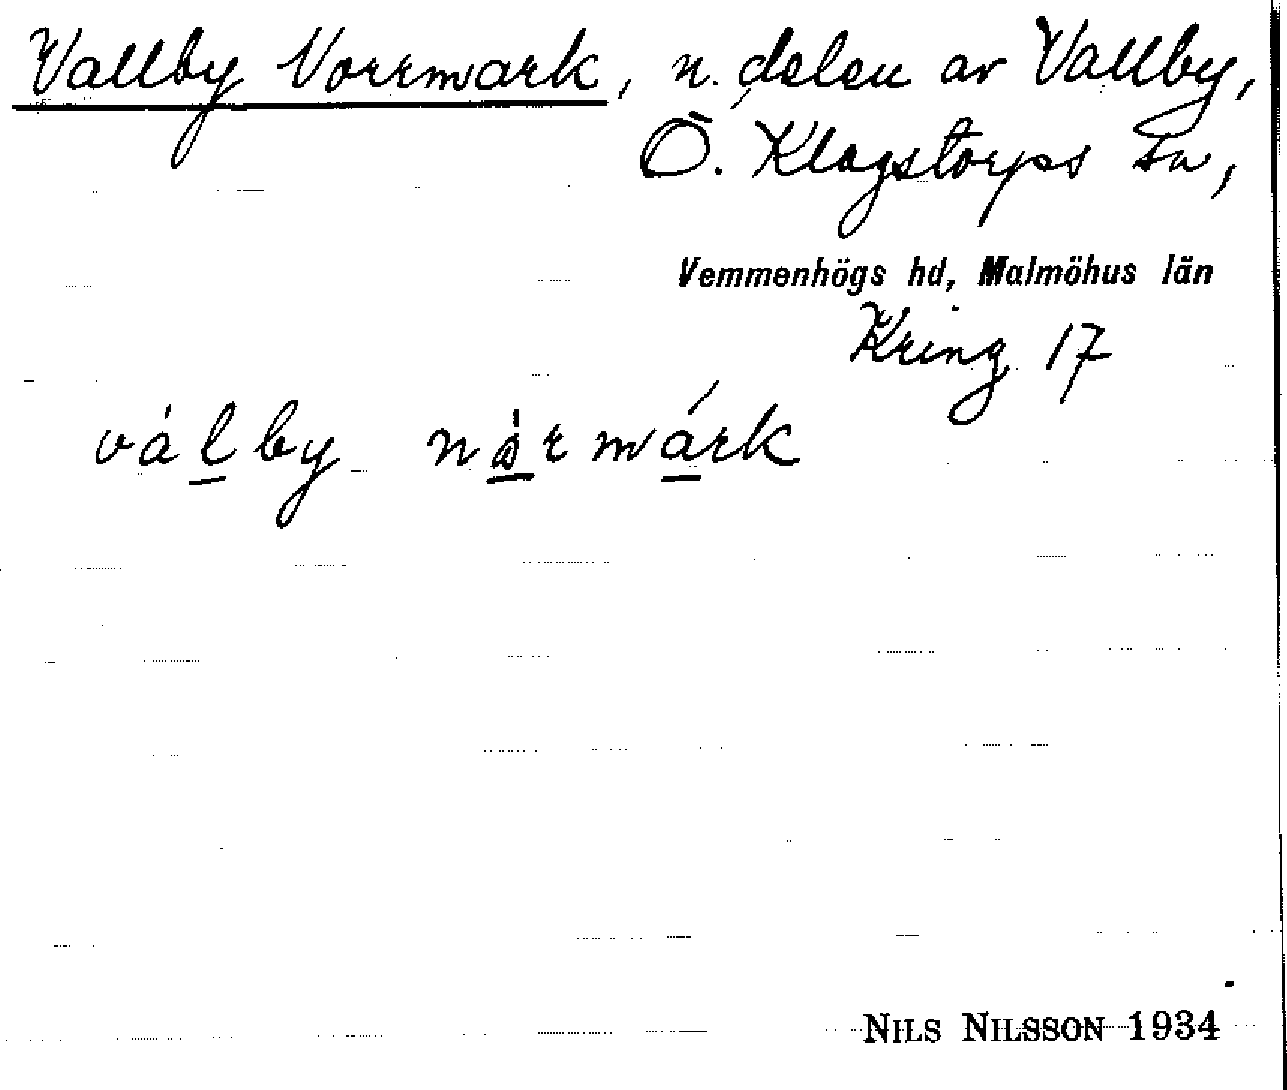 Vallby Norrmark, n. delen av Vallby,
Ö. Klagstorps sn,
Vemmenhögs hd, Malmöhus län
Kring 17
válby nårmárk
NILS NILSSON 1934